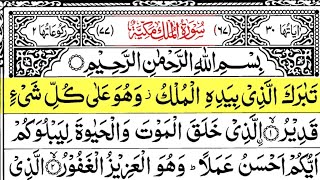 اٰیَاتُهَا ۳۰ (۶۷) سُوْرَةُ الْمُلْكِ مَكِّيَّةٌ (۷۷) رُكُوْعَاتُهَا ۲
بِسْمِ اللّٰهِ الرَّحْمٰنِ الرَّحِيْمِ
تَبٰرَكَ الَّذِيْ بِيَدِهِ الْمُلْكُ ز وَهُوَ عَلٰى كُلِّ شَيْءٍ
قَدِيْرُ ۙ﴿۱﴾ الَّذِيْ خَلَقَ الْمَوْتَ وَالْحَيٰوةَ لِيَبْلُوَكُمْ
اَيُّكُمْ اَحْسَنُ عَمَلًا ؕ وَهُوَ الْعَزِيْزُ الْغَفُوْرُ ۙ﴿۲﴾ الَّذِيْ